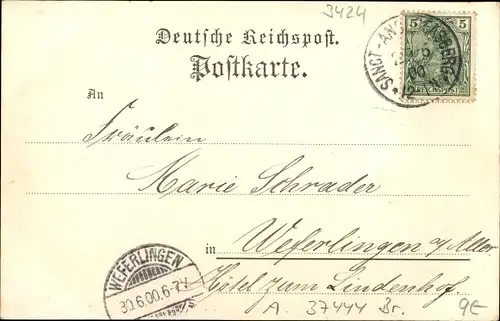 3424
Deutsche Reichspost.
Postkarte.
5 5
REICHSPOST
SANCT-ANDREASBERG
00
* 12
An
Fräulein
Marie Schrader
in Weferlingen a/Aller
Hôtel zum Lindenhof.
WEFERLINGEN
30.6.00.6-7V
A. 37444 Br. 9E